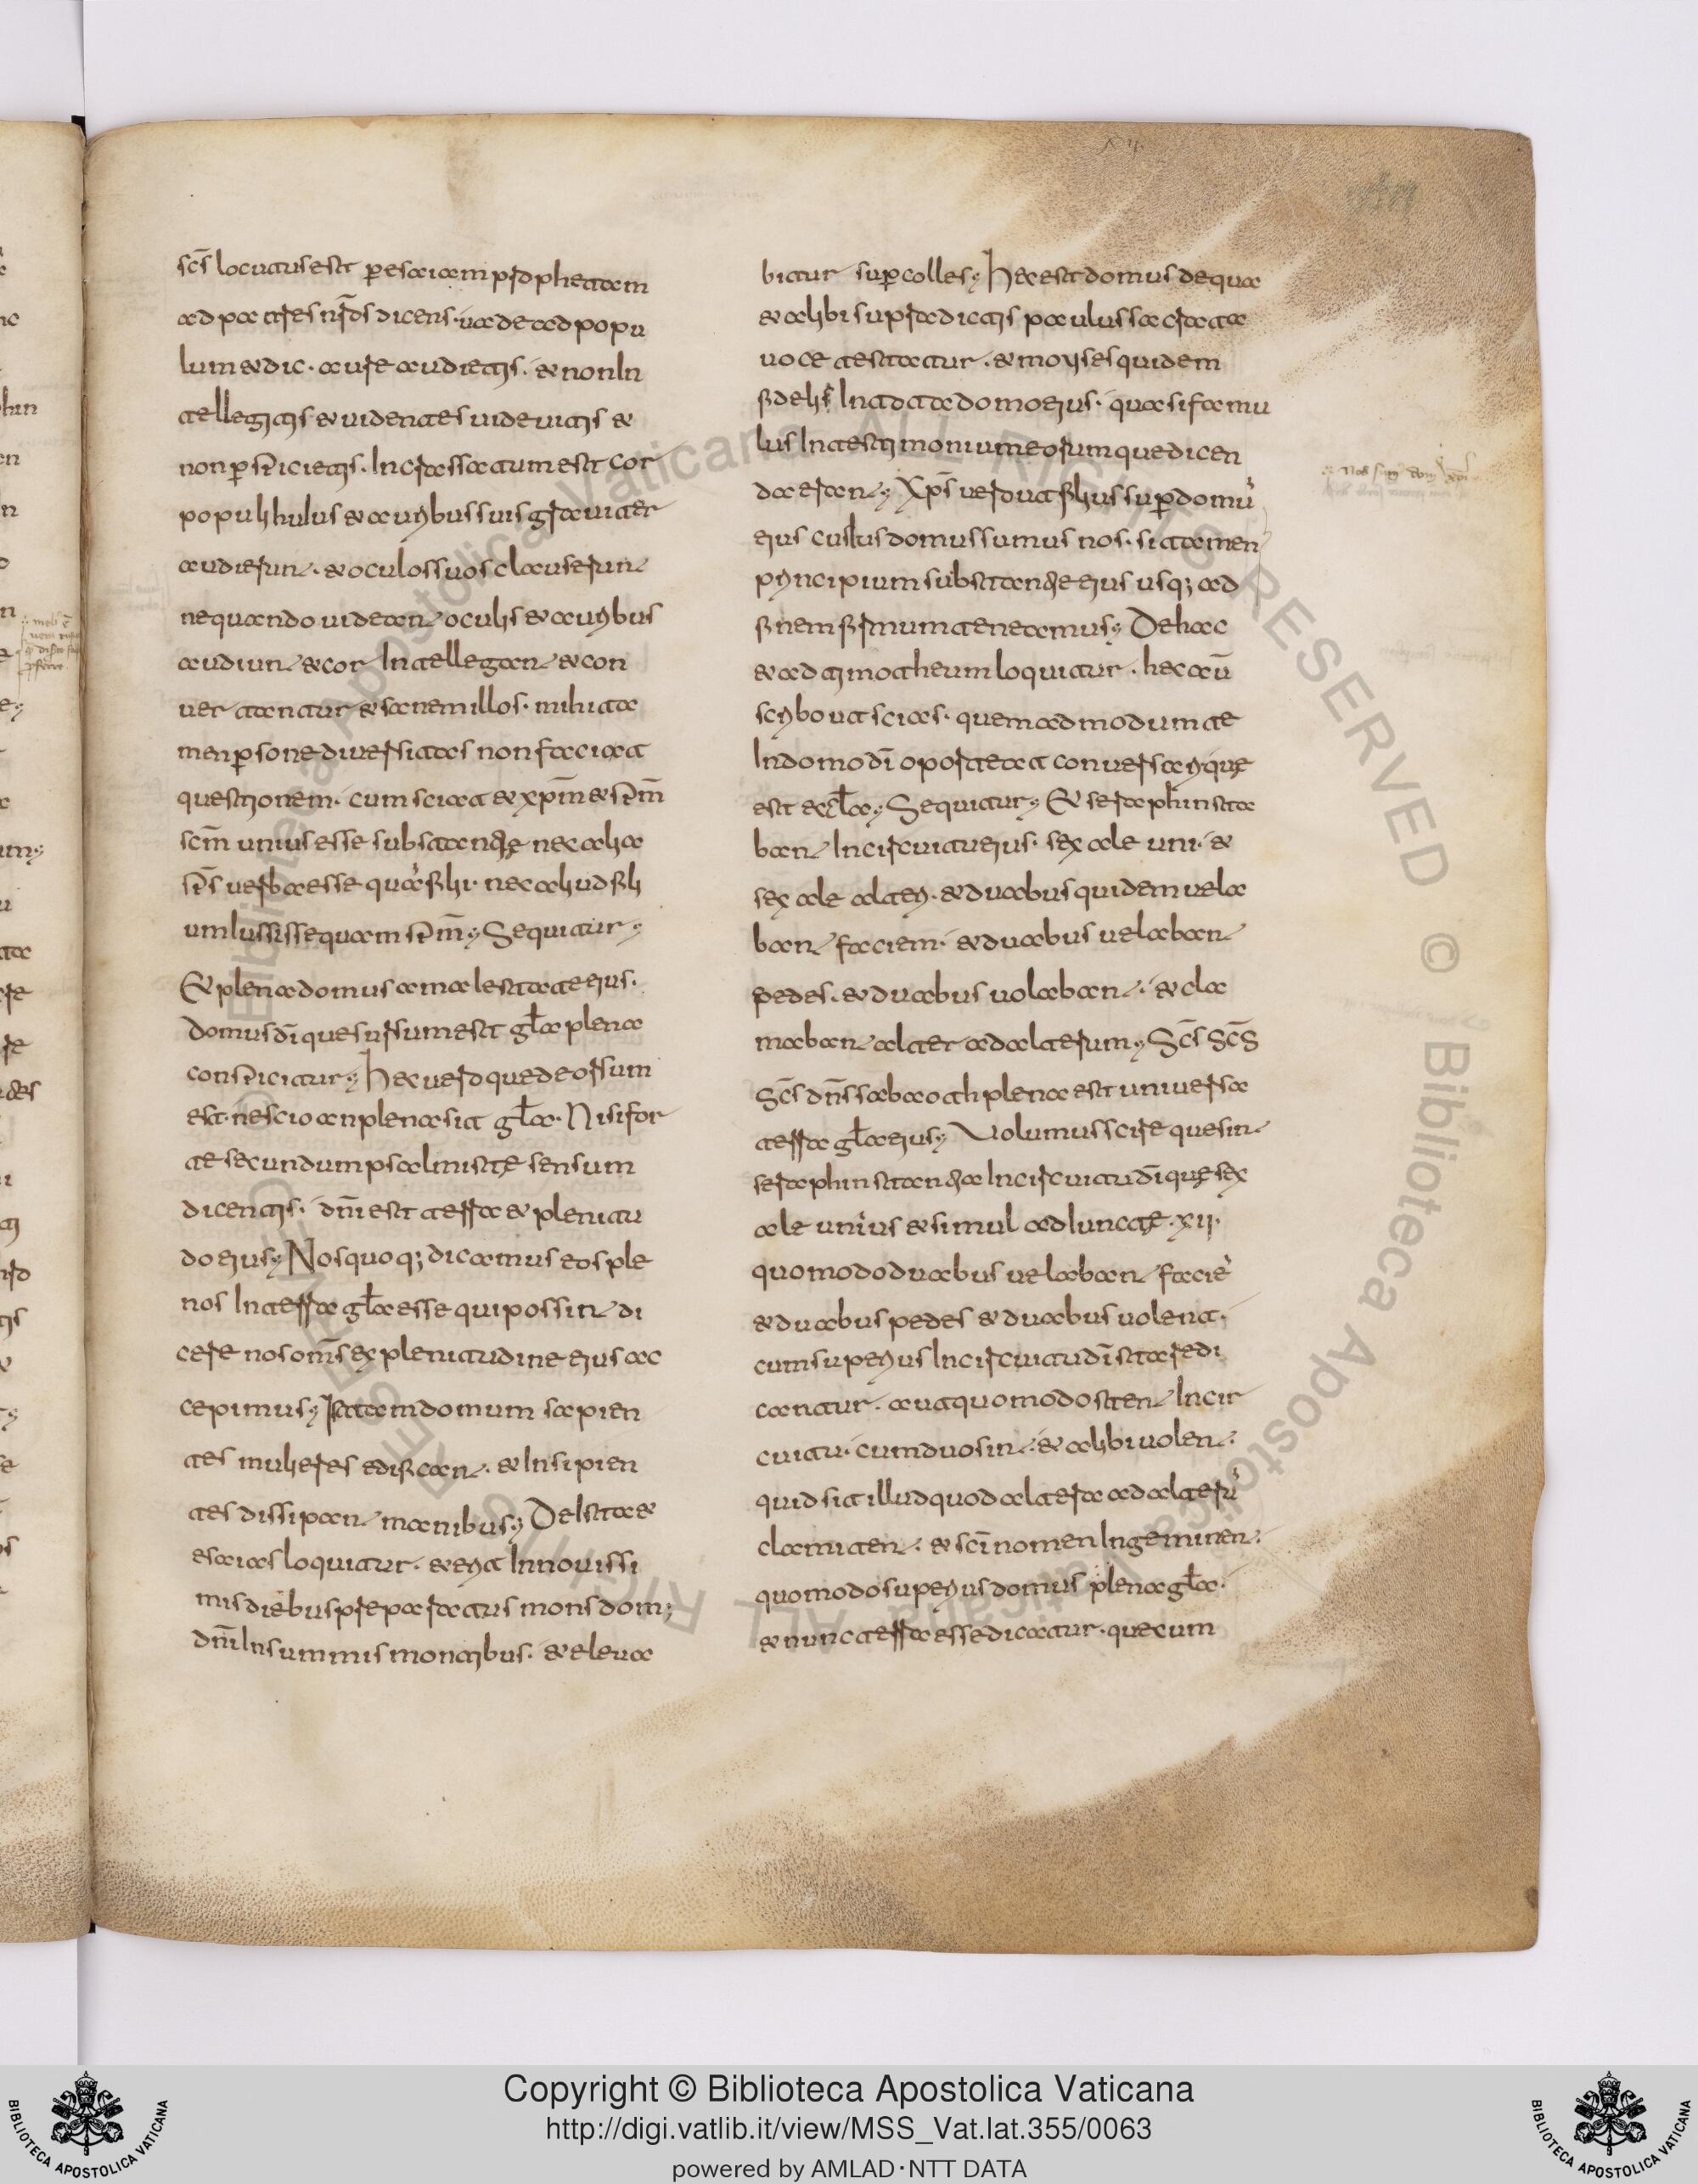 scs̄ locutus est p̄ esaiam prophetam
ad patres nr̄os dicens. uade ad popu
lum & dic. aure audietis. & non In
tellegitis & uidentes uidebitis &
non ꝑspicietis. Incrassatum est cor
populi huius & auribus suis grauiter
audierunt. & oculos suos clauserunt
nequando uideant oculis & auribus
audiunt & cor Intellegant & con
uertantur & sanem illos. mihi ta
men ꝑsone diuersitas non faciat
questionem. cum sciat & xp̄m & sp̄m
scm̄ unius esse substantię nec alia
sp̄s uerba esse quā filii. nec aliud fili
um Iussisse quam sp̄m; Sequitur;
Et plena domus a maiestate eius.
domus dī que sursum est glā plena
conspicitur; Hec uero que deorsum
est. nescio an plena sit glā. Nisi for
te secundum psalmistę sensum
dicentis. dn̄i est terra & plenitu
do eius; Nos quoq; dicamus eos ple
nos In terra glā esse qui possint di
cere nos oms̄ ex plenitudine eius ac
cepimus; Istam domum sapien
tes mulieres edificant. & Insipien
tes dissipant manibus; De Ista &
esaias loquitur. & erit In nouissi
mis diebus preparatus mons dom;
dn̄i In summis montibus. & eleua
bitur suꝑ colles; Hec est domus de qua
& alibi supra dictus paulus sacrata
uoce testatur. & moyses quidem
fidelis In tota domo eius. quasi famu
lus In testimonium eorum que dicen
da erant; Xps̄ uero ut filius suꝑ domū
eius cuius domus sumus nos. si tamen
principium substantię eius usq; ad
finem firmum teneamus; De hac
& ad timotheum loquitur. hec aū
scribo ut scias. quemadmodum te
In domo dī oporteat conuersari. que
est eccla; Sequitur; Et seraphin sta
bant In circuitu eius. sex ale uni. &
sex ale alteri. & duabus quidem uela
bant faciem. & duabus uelabant
pedes. & duabus uolabant. & cla
mabant alter ad alterum; Scs̄ Scs̄
Scs̄ dns̄ sabaoth plena est uniuersa
terra glā eius; Volumus scire que sint
seraphin stantia In circuitu dī que sex
ale unius & simul ad Iunctę. xii.
quomodo duabus uelabant faciē
& duabus pedes & duabus uolent.
cum superius In circuitu dī stare di
cantur. aut quomodo stent In cir
cuitu. cum duo sint. & alibi uolent.
quid sit illud quod altera ad alterū
clamitent. & scī nomen Ingeminent.
quomodo superius domus plena glā.
& nunc terra esse dicatur. que cum